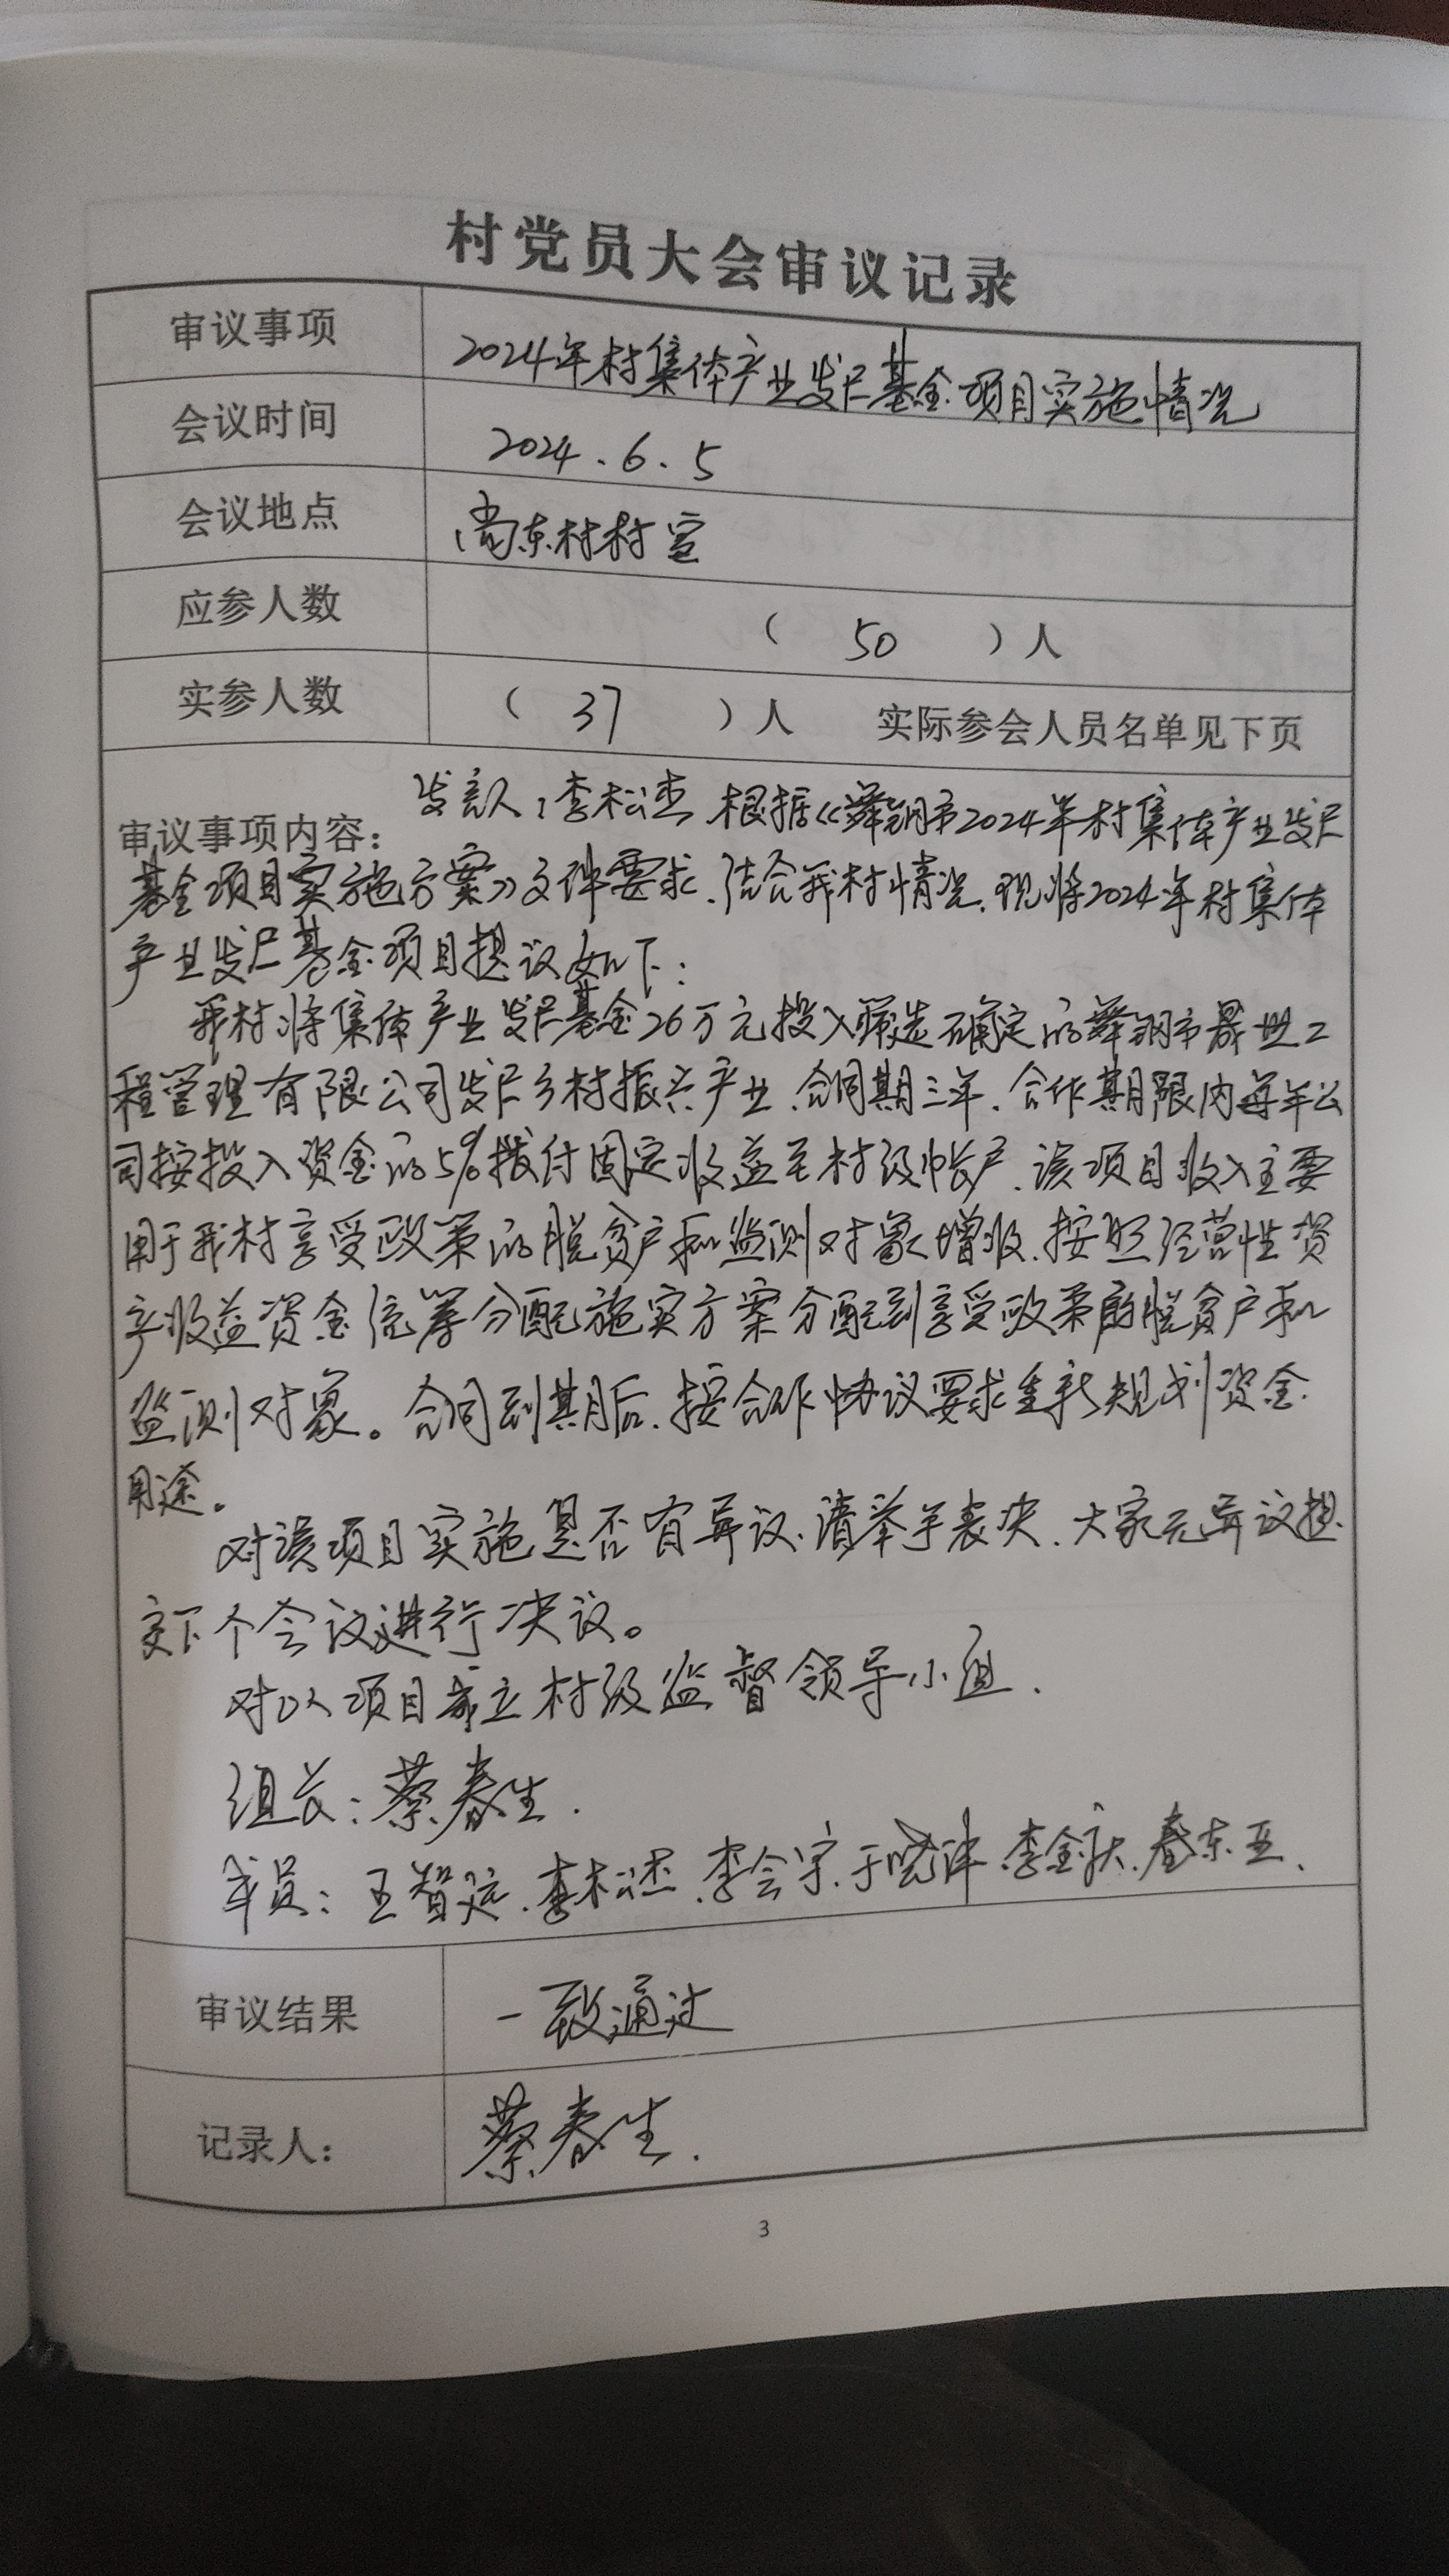 村党员大会审议记录
审议事项 2024年村集体产业发展基金项目实施情况
会议时间 2024.6.5
会议地点 尚东村村室
应参人数 ( 50 )人
实参人数 ( 37 )人 实际参会人员名单见下页
审议事项内容: 发言人:李松杰 根据《舞钢市2024年村集体产业发展
基金项目实施方案》文件要求.结合我村情况.现将2024年村集体
产业发展基金项目提议如下:
我村将集体产业发展基金26万元投入筛选确定的舞钢市晟世工
程管理有限公司发展乡村振兴产业.合同期三年.合作期限内每年公
司按投入资金的5%拨付固定收益至村级帐户.该项目收入主要
用于我村享受政策的脱贫户和监测对象增收.按照经营性资
产收益资金统筹分配施实方案分配到享受政策的脱贫户和
监测对象。合同到期后.按合作协议要求重新规划资金
用途。
对该项目实施是否有异议.请举手表决.大家无异议提
交下个会议进行决议。
对以项目成立村级监督领导小组.
组长:蔡春生.
成员:王智远.李松杰.李会宇.于晓.李金庆.东亚.
审议结果 一致通过
记录人: 蔡春生.
3